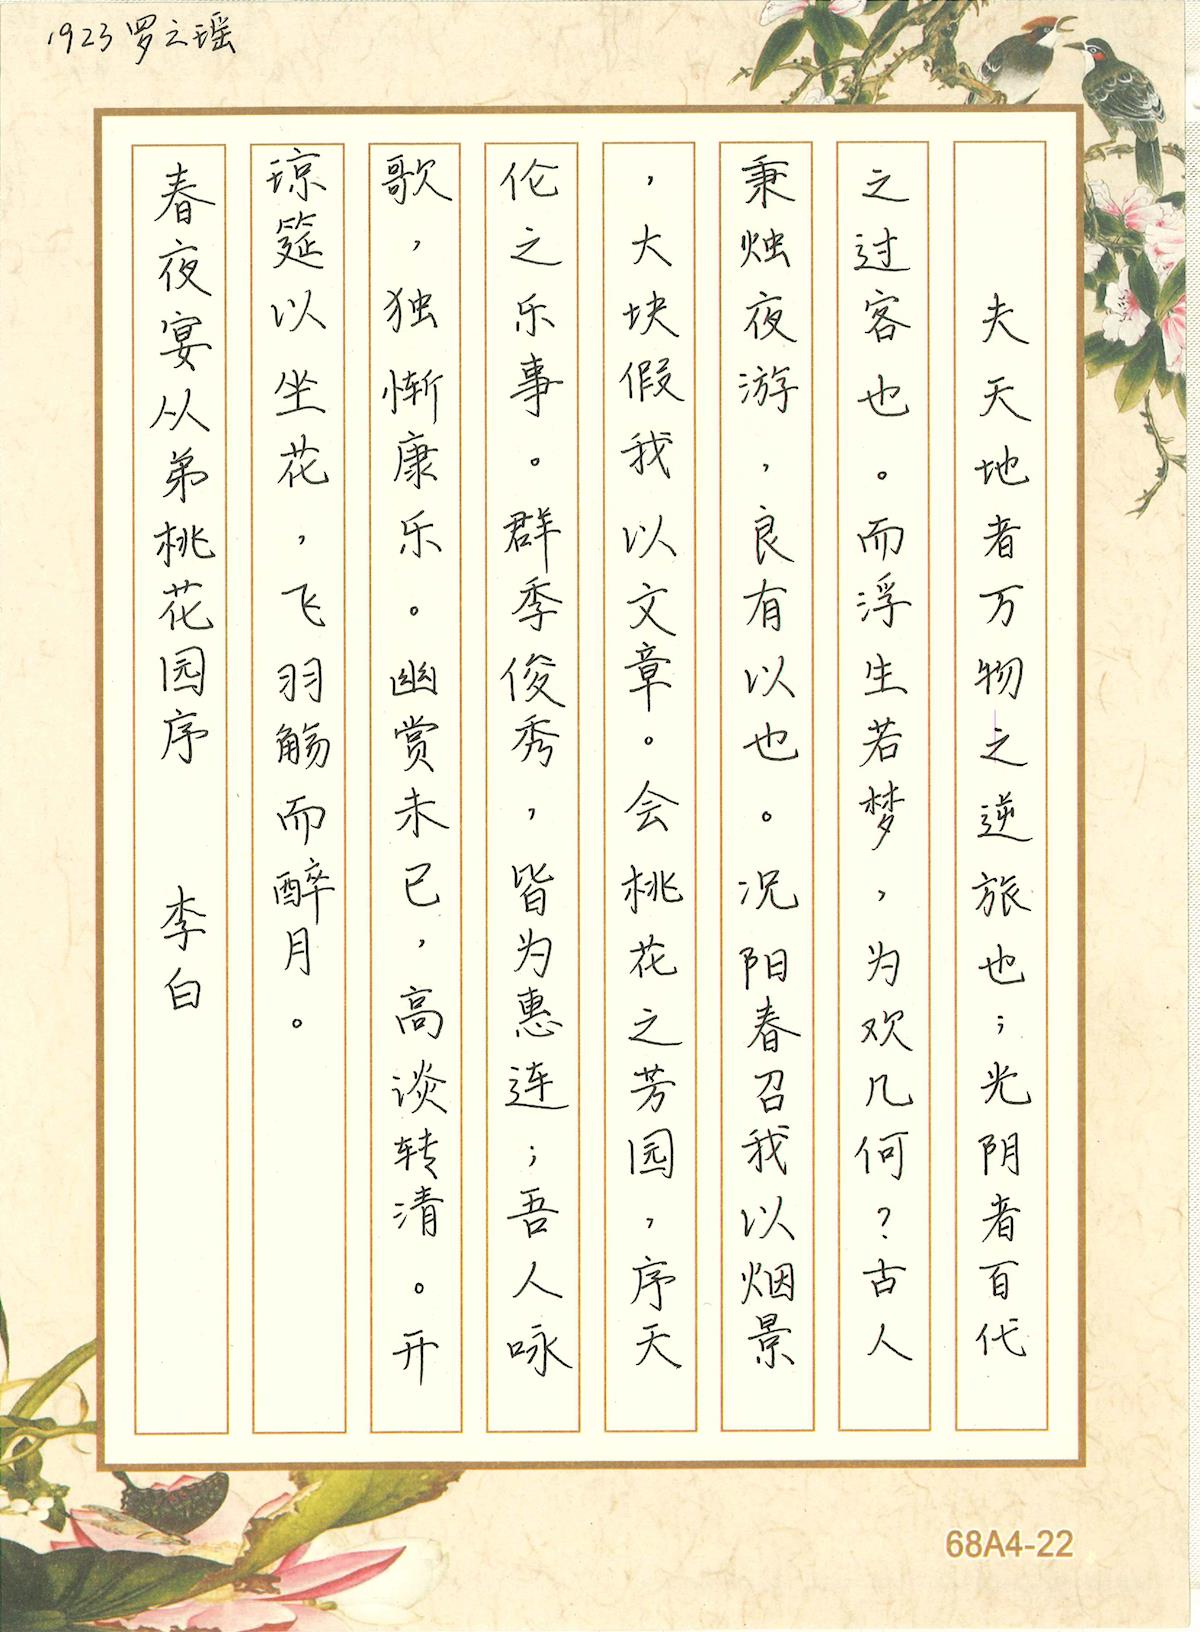 1923罗之瑶
夫天地者万物之逆旅也；光阴者百代
之过客也。而浮生若梦，为欢几何？古人
秉烛夜游，良有以也。况阳春召我以烟景
，大块假我以文章。会桃花之芳园，序天
伦之乐事。群季俊秀，皆为惠连；吾人咏
歌，独惭康乐。幽赏未已，高谈转清。开
琼筵以坐花，飞羽觞而醉月。
春夜宴从弟桃花园序 李白
68A4-22